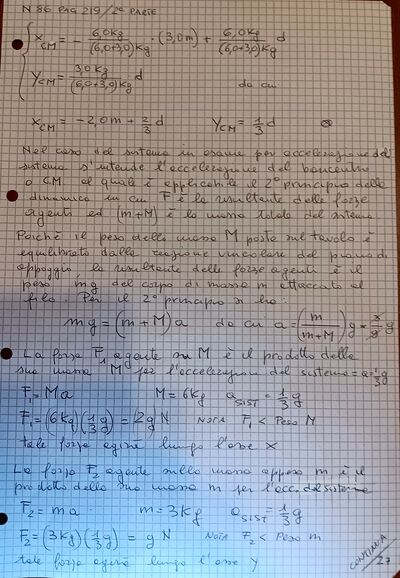 N 86 PAG 219/2ª PARTE
x_CM = - 6,0Kg/(6,0+3,0)Kg · (3,0m) + 6,0Kg/(6,0+3,0)Kg d
y_CM = 3,0Kg/(6,0+3,0)Kg · d da cui
x_CM = -2,0m + 2/3 d y_CM = 1/3 d
Nel caso del sistema in esame per accelerazione del
sistema s'intende l'accelerazione del baricentro
o CM al quale è applicabile il 2° principio della
dinamica in cui F è la risultante delle forze
agenti ed (m+M) è la massa totale del sistema.
Poiché il peso della massa M posta sul tavolo è
equilibrato dalla reazione vincolare del piano di
appoggio, la risultante delle forze agenti è il
peso mg del corpo di massa m attaccato al
filo. Per il 2° principio si ha:
mg = (m+M)a da cui a = (m/(m+M))g =
La forza F₁ agente su M è il prodotto della
sua massa M per l'accelerazione del sistema = a = 1/3 g
F₁ = Ma M = 6Kg a_SIST = 1/3 g
F₁ = (6Kg)(1/3 g) = 2g N NOTA F₁ < Peso M
tale forza agirà lungo l'asse x
La forza F₂ agente sulla massa appesa m è il
prodotto della sua massa m per l'acc. del sistema
F₂ = ma m = 3Kg a_SIST = 1/3 g
F₂ = (3Kg)(1/3 g) = g N NOTA F₂ < Peso m
tale forza agirà lungo l'asse y
CONTINUA
27